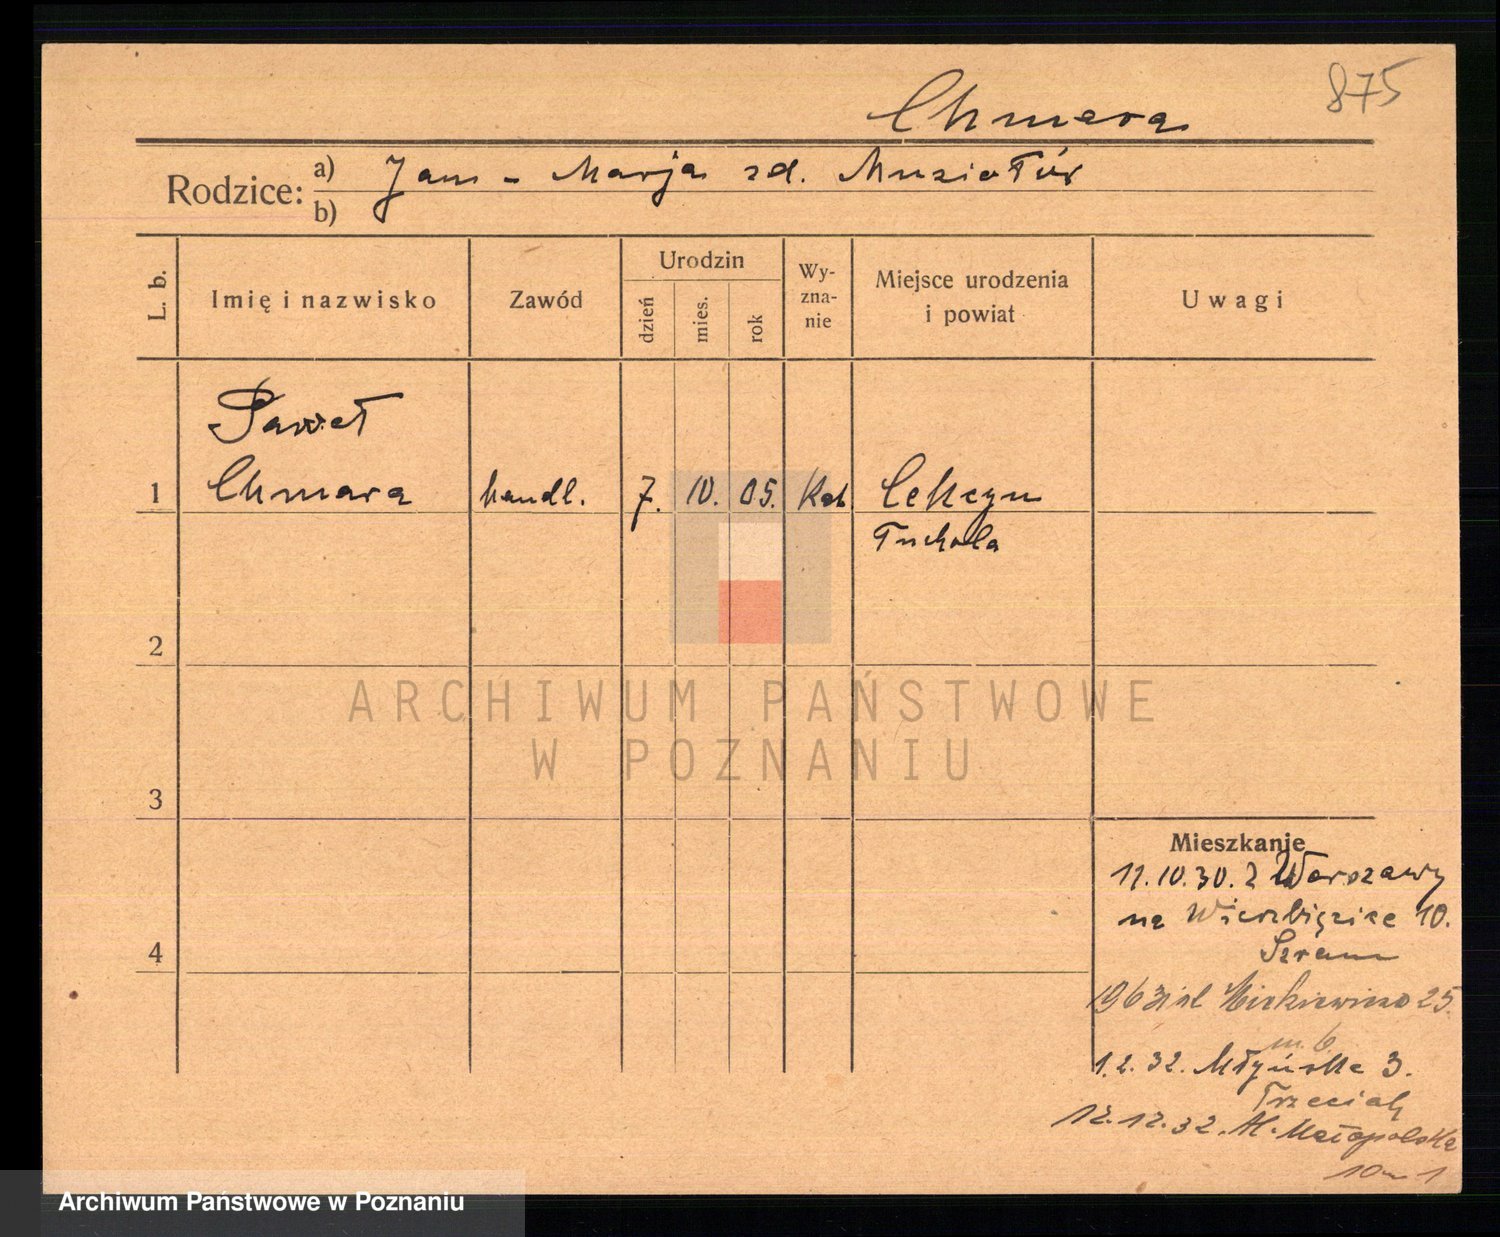 875
Chmara
Rodzice: a) Jan - Marja zd. Muziołów
b)
L. b.
Imię i nazwisko
Zawód
Urodzin
dzień
mies.
rok
Wy-
zna-
nie
Miejsce urodzenia
i powiat
Uwagi
Paweł
1 Chmara handl. 7. 10. 05. Kat. Cekcyn
Tuchola
2
3
4
Mieszkanie
11.10.30. z Warszawy
na Wierzbięcice 10.
Szram
Mickiewicza 25.
m. 6
1.2.32. Młyńska 3.
Trzeciak
12.12.32. Al. Małopolska
10 m 1
ARCHIWUM PAŃSTWOWE
W POZNANIU
Archiwum Państwowe w Poznaniu